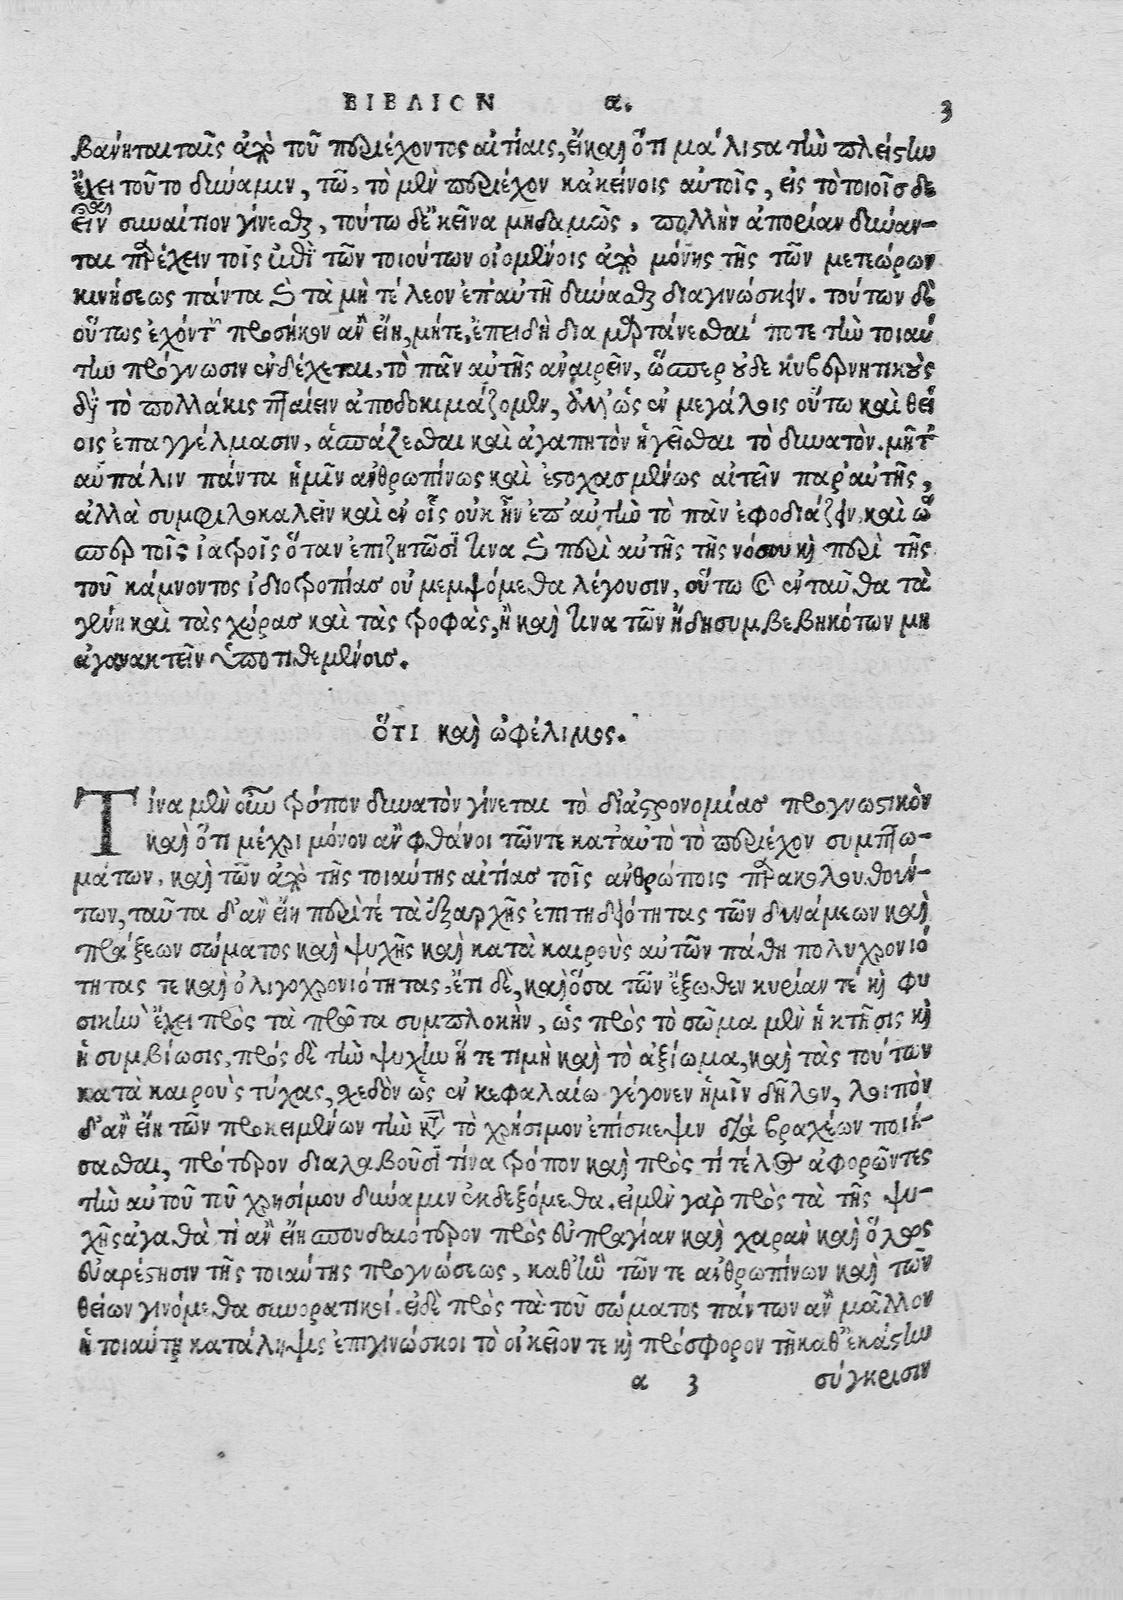 ΒΙΒΛΙΟΝ α. 3
βανηται ταῖς ἀπὸ τοῦ περιέχοντος αἰτίαις, εἰ καὶ ὅτι μάλιστα τὴν πλείστην
ἔχει τοῦτο δύναμιν, τῶ, τὸ μὲν περιέχον κἀκείνοις αὐτοῖς, εἰς τὸ τοιοῖσδε
εἶναι συναίτιον γίνεσθαι, τούτω δ' ἐκεῖνα μηδαμῶς, πολλὴν ἀπορίαν δύναν-
ται παρέχειν τοῖς ἐπὶ τῶν τοιούτων οἰομένοις ἀπὸ μόνης τῆς τῶν μετεώρων
κινήσεως πάντα καὶ τὰ μὴ τέλεον ἐπ' αὐτῆ δύνασθαι διαγινώσκειν. τούτων δὲ
οὕτως ἐχόντων προσῆκον ἂν εἴη, μήτε, ἐπειδὴ διαμαρτάνεσθαί ποτε τὴν τοιαύ
την πρόγνωσιν ἐνδέχεται, τὸ πᾶν αὐτῆς ἀναιρεῖν, ὥσπερ οὐδὲ κυβερνητικοὺς
διὰ τὸ πολλάκις πταίειν ἀποδοκιμάζομεν, ἀλλ' ὡς ἐν μεγάλοις οὕτω καὶ θεί
οις ἐπαγγέλμασιν, ἀσπάζεσθαι καὶ ἀγαπητὸν ἡγεῖσθαι τὸ δυνατὸν. μήτ'
αὖ πάλιν πάντα ἡμῖν ἀνθρωπίνως καὶ ἐστοχασμένως αἰτεῖν παρ' αὐτῆς,
ἀλλὰ συμφιλοκαλεῖν καὶ ἐν οἷς οὐκ ἦν ἐπ' αὐτὴν τὸ πᾶν ἐφοδιάζειν, καὶ ὥ
σπερ τοῖς ἰατροῖς ὅταν ἐπιζητῶσί τινα καὶ περὶ αὐτῆς τῆς νόσου καὶ περὶ τῆς
τοῦ κάμνοντος ἰδιοτροπίας οὐ μεμψόμεθα λέγουσιν, οὕτω καὶ ἐνταῦθα τὰ
γένη καὶ τὰς χώρας καὶ τὰς τροφὰς, ἢ καὶ τινα τῶν ἤδη συμβεβηκότων μὴ
ἀγανακτεῖν ὑποτιθεμένοις.
ὅτι καὶ ὠφέλιμος.
Τίνα μὲν οὖν τρόπον δυνατὸν γίνεται τὸ δι' ἀστρονομίας προγνωστικὸν
καὶ ὅτι μέχρι μόνον ἂν φθάνοι τῶν τε κατ' αὐτὸ τὸ περιέχον συμπτω-
μάτων, καὶ τῶν ἀπὸ τῆς τοιαύτης αἰτίας τοῖς ἀνθρώποις παρακολουθούν-
των, ταῦτα δ' ἂν εἴη περί τε τὰ ἐξαρχῆς ἐπιτηδειότητας τῶν δυνάμεων καὶ
πράξεων σώματος καὶ ψυχῆς καὶ κατὰ καιροὺς αὐτῶν πάθη πολυχρονιό
τητας τε καὶ ὀλιγοχρονιότητας, ἔτι δὲ, καὶ ὅσα τῶν ἔξωθεν κυρίαν τέ καὶ φυ
σικὴν ἔχει πρὸς τὰ πρῶτα συμπλοκὴν, ὡς πρὸς τὸ σῶμα μὲν ἡ κτῆσις καὶ
ἡ συμβίωσις, πρὸς δὲ τὴν ψυχὴν ἥ τε τιμὴ καὶ τὸ ἀξίωμα, καὶ τὰς τούτων
κατὰ καιροὺς τύχας, σχεδὸν ὡς ἐν κεφαλαίω γέγονεν ἡμῖν δῆλον, λοιπὸν
δ' ἂν εἴη τῶν προκειμένων τὴν κατὰ τὸ χρήσιμον ἐπίσκεψιν διὰ βραχέων ποιή-
σασθαι, πρότερον διαλαβοῦσι τίνα τρόπον καὶ πρὸς τί τέλος ἀφορῶντες
τὴν αὐτοῦ τοῦ χρησίμου δύναμιν ἐκδεξόμεθα. εἰ μὲν γὰρ πρὸς τὰ τῆς ψυ-
χῆς ἀγαθὰ τί ἂν εἴη σπουδαιότερον πρὸς εὐπραγίαν καὶ χαρὰν καὶ ὅλως
εὐαρέστησιν τῆς τοιαύτης προγνώσεως, καθ' ἣν τῶν τε ἀνθρωπίνων καὶ τῶν
θείων γινόμεθα συνορατικοί. εἰ δὲ πρὸς τὰ τοῦ σώματος πάντων ἂν μᾶλλον
ἡ τοιαύτη κατάληψις ἐπιγινώσκοι τὸ οἰκεῖον τε καὶ πρόσφορον τῆ καθ' ἑκάστην
α 3 σύγκρισιν